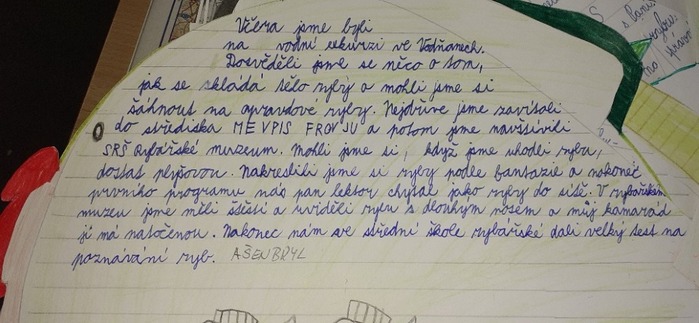 Včera jsme byli
na vodní exkurzi ve Vodňanech.
Dosvěděli jsme se něco o tom,
jak se skládá tělo ryby a mohli jsme si
šáhnout na opravdové ryby. Nejdříve jsme zavítali
do střediska MEVPIS FROVJU a potom jsme navštívili
SRŠ Rybářské muzeum. Mohli jsme si, když jsme uhodli rybu,
dostat plyšovou. Nakreslili jsme si ryby podle fantazie a nakonec
prvního programu nás pan lektor chytal jako ryby do sítě. V rybářském
muzeu jsme měli štěstí a viděli rybu s dlouhým nosem a můj kamarád
ji má natočenou. Nakonec nám ve střední škole rybářské dali velký test na
poznávání ryb. AŠENBRYL